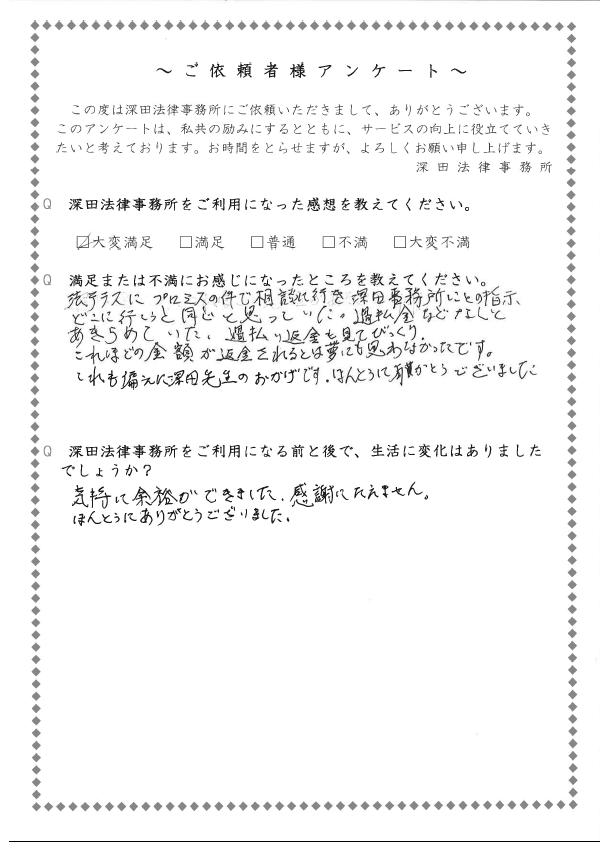 ～ご依頼者様アンケート～
この度は深田法律事務所にご依頼いただきまして、ありがとうございます。
このアンケートは、私共の励みにするとともに、サービスの向上に役立てていき
たいと考えております。お時間をとらせますが、よろしくお願い申し上げます。
深田法律事務所
Q 深田法律事務所をご利用になった感想を教えてください。
☑大変満足 □満足 □普通 □不満 □大変不満
Q 満足または不満にお感じになったところを教えてください。
法テラスに プロミスの件で相談に行き 深田事務所にとの指示
どこに行こうと同じと思っていた。過払金などなしと
あきらめていた、過払い返金を見てびっくり。
これほどの金額が返金されるとは夢にも思わなかったです。
これも偏えに深田先生のおかげです。ほんとうに有難がとうございました
Q 深田法律事務所をご利用になる前と後で、生活に変化はありました
でしょうか？
気持に余裕ができました。感謝にたえません。
ほんとうにありがとうございました。